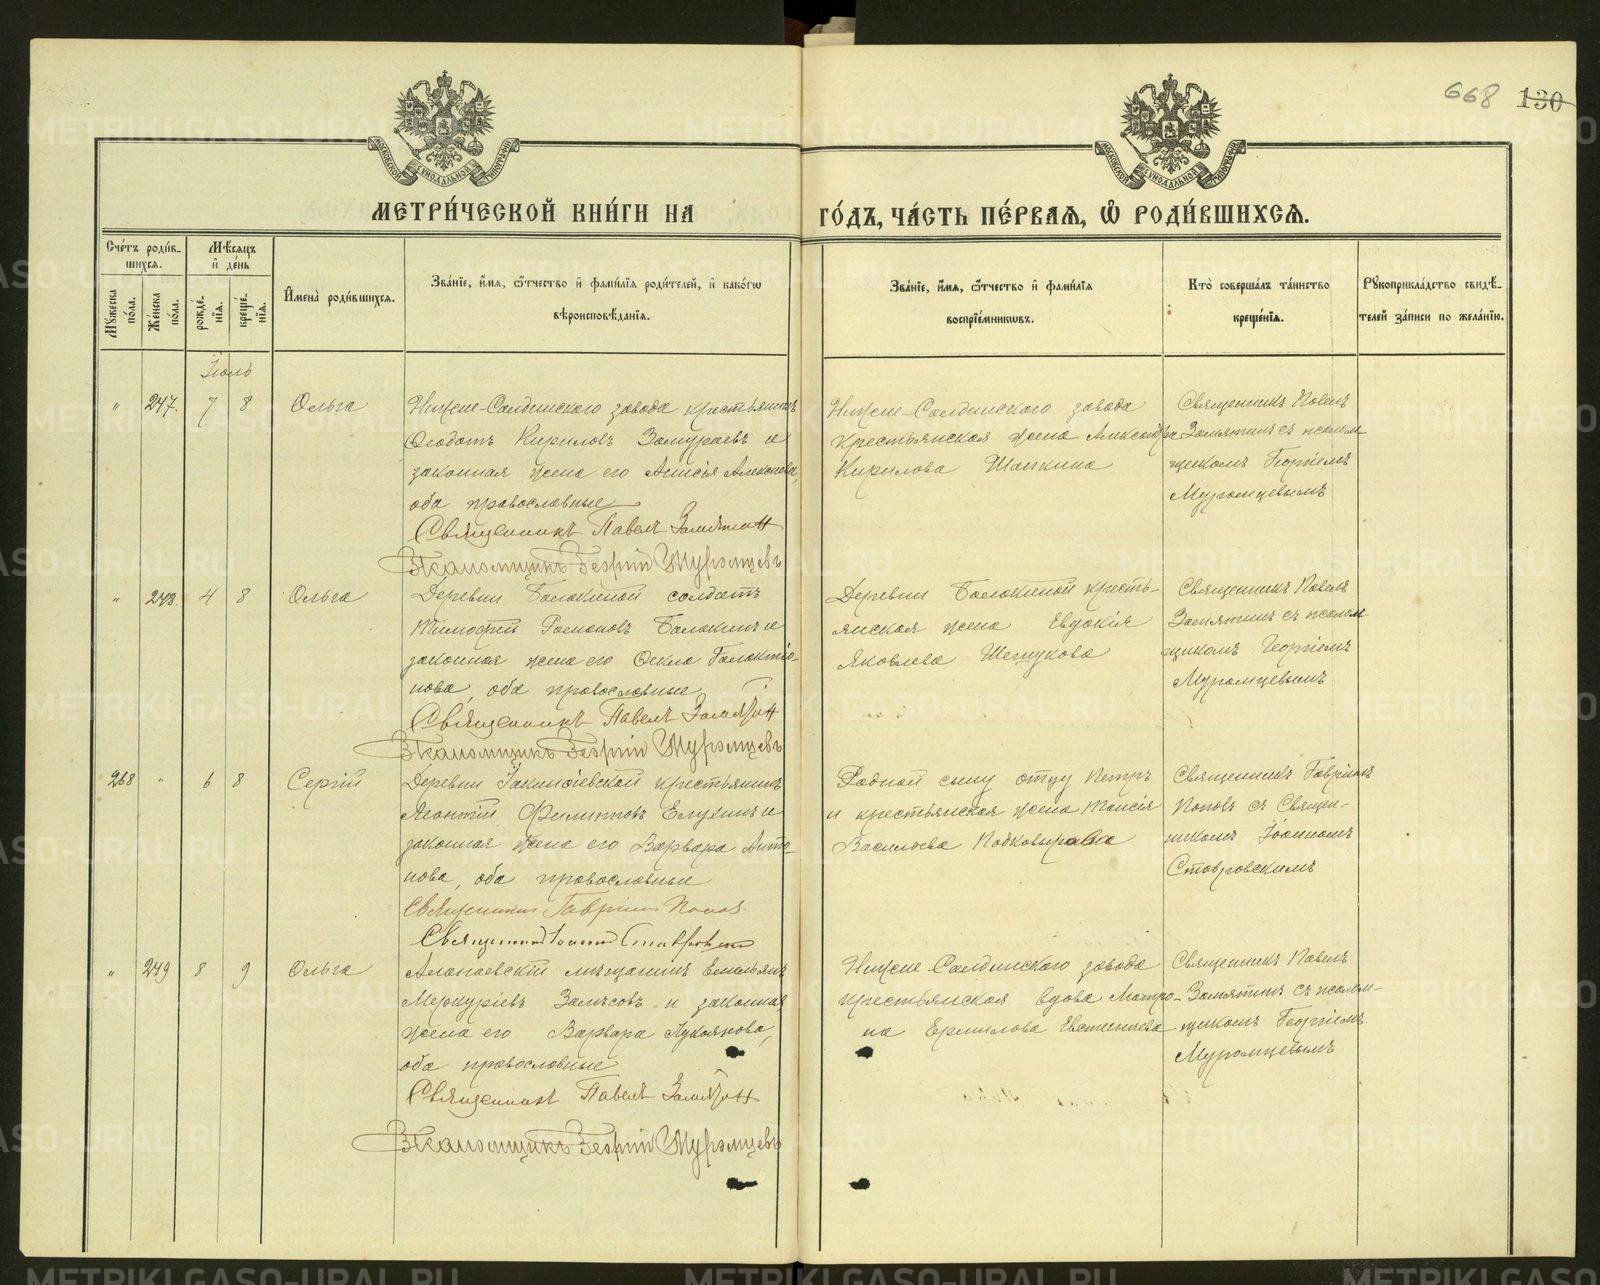 668 130
МОСКОВСКОЙ СѴНОДАЛЬНОЙ ТИПОГРАФІИ
МОСКОВСКОЙ СѴНОДАЛЬНОЙ ТИПОГРАФІИ
МЕТРИ́ЧЕСКОЙ КНИ́ГИ НА ГО́ДЪ, ЧА́СТЬ ПЕ́РВАЯ, Ѡ҆ РОДИ́ВШИХСЯ.
Сче́тъ роди́в-
шихся.
Мꙋ́жеска по́ла.
Же́нска по́ла.
Мѣ́сяцъ
и҆ де́нь
рожде́-
нїя.
креще́-
нїя.
И҆мена̀ роди́вшихся.
Зва́нїе, и҆́мя, ѻ҆́тчество и҆ фами́лїя роди́телей, и҆ како́гѡ
вѣроисповѣ́данїя.
Зва́нїе, и҆́мя, ѻ҆́тчество и҆ фами́лїя
воспрїе́мникѡвъ.
Кто̀ соверша́лъ та́инство
креще́нїя.
Рꙋкоприкла́дство свидѣ́-
телей за́писи по жела́нїю.
Іюль
" 247. 7 8 Ольга
Нижне-Салдинского завода крестьянинъ
Ѳеодотъ Кириловъ Замураевъ и
законная жена его Анисія Алексѣева,
оба православные
Священникъ Павелъ Замятин
Псаломщикъ Георгій Муромцевъ
Нижне-Салдинского завода
крестьянская жена Александра
Кирилова Шапкина
Священникъ Павелъ
Замятинъ съ псалом
щикомъ Георгіемъ
Муромцевымъ
" 248. 4 8 Ольга
Деревни Балакиной солдатъ
Тимофей Романовъ Балакинъ и
законная жена его Ѳекла Галактіо-
нова, оба православные
Священникъ Павелъ Замятин
Псаломщикъ Георгій Муромцевъ
Деревни Балакиной кресть-
янская жена Евдокія
Яковлева
Священникъ Павелъ
Замятинъ съ псалом
щикомъ Георгіемъ
Муромцевымъ
268 " 6 8 Сергій
Деревни крестьянинъ
Леонтій Филипповъ Елухинъ и
законная жена его Варвара Анто-
нова, оба православные
Священникъ Гавріилъ Попов
Священникъ Іоаннъ Ставровскій
Родной сыну отцу Петръ
и крестьянская жена Таисія
Васильева Подковыркина
Священникъ Гавріилъ
Поповъ съ Священ-
никомъ Іоанномъ
Ставровскимъ
" 249 8 9 Ольга
Алапаевскій мѣщанинъ Емельянъ
Меркуріевъ Замѣсовъ и законная
жена его Варвара Лукоянова,
оба православные
Священникъ Павелъ Замятин
Псаломщикъ Георгій Муромцевъ
Нижне-Салдинского завода
крестьянская вдова Матро-
на Ермилова Евстигнѣева
Священникъ Павелъ
Замятинъ съ псалом-
щикомъ Георгіемъ
Муромцевымъ